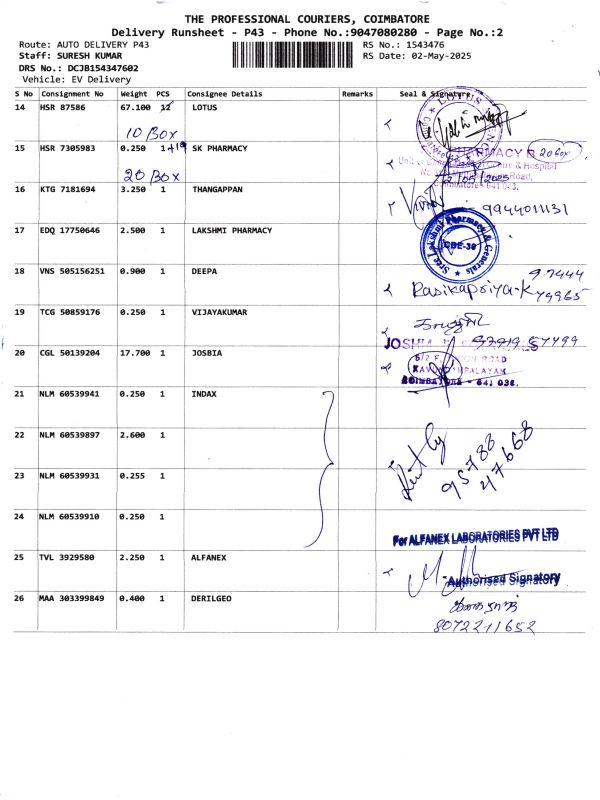 THE PROFESSIONAL COURIERS, COIMBATORE
Delivery Runsheet - P43 - Phone No.:9047080280 - Page No.:2
Route: AUTO DELIVERY P43 RS No.: 1543476
Staff: SURESH KUMAR RS Date: 02-May-2025
DRS No.: DCJB154347602
Vehicle: EV Delivery
S No Consignment No Weight PCS Consignee Details Remarks Seal & Signature
14 HSR 87586 67.100 12 LOTUS
10 BOX
15 HSR 7305983 0.250 1+19 SK PHARMACY
20 Box
20 BOX
16 KTG 7181694 3.250 1 THANGAPPAN
9944011131
17 EDQ 17750646 2.500 1 LAKSHMI PHARMACY
Sree Lakshmi Pharmacy & Generals
CBE-38
18 VNS 505156251 0.900 1 DEEPA
97444
Rasikapriya-K 79965
19 TCG 50859176 0.250 1 VIJAYAKUMAR
57499
20 CGL 50139204 17.700 1 JOSBIA
COIMBATORE - 641 038.
21 NLM 60539941 0.250 1 INDAX
22 NLM 60539897 2.600 1
95788
47668
23 NLM 60539931 0.255 1
24 NLM 60539910 0.250 1
For ALFANEX LABORATORIES PVT LTD
25 TVL 3929580 2.250 1 ALFANEX
Authorised Signatory
26 MAA 303399849 0.400 1 DERILGEO
8072211652